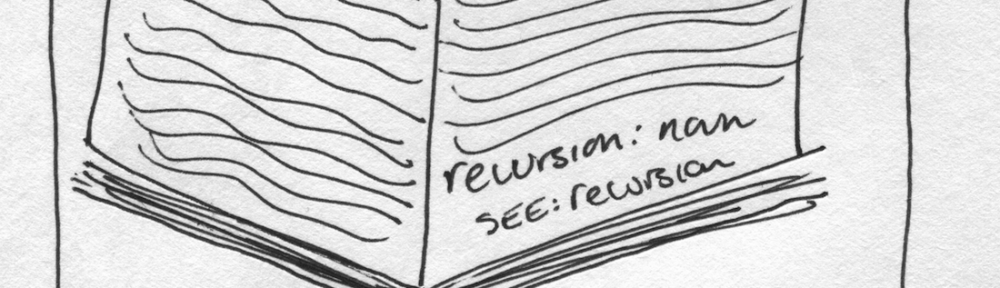 recursion: nan
SEE: recursion